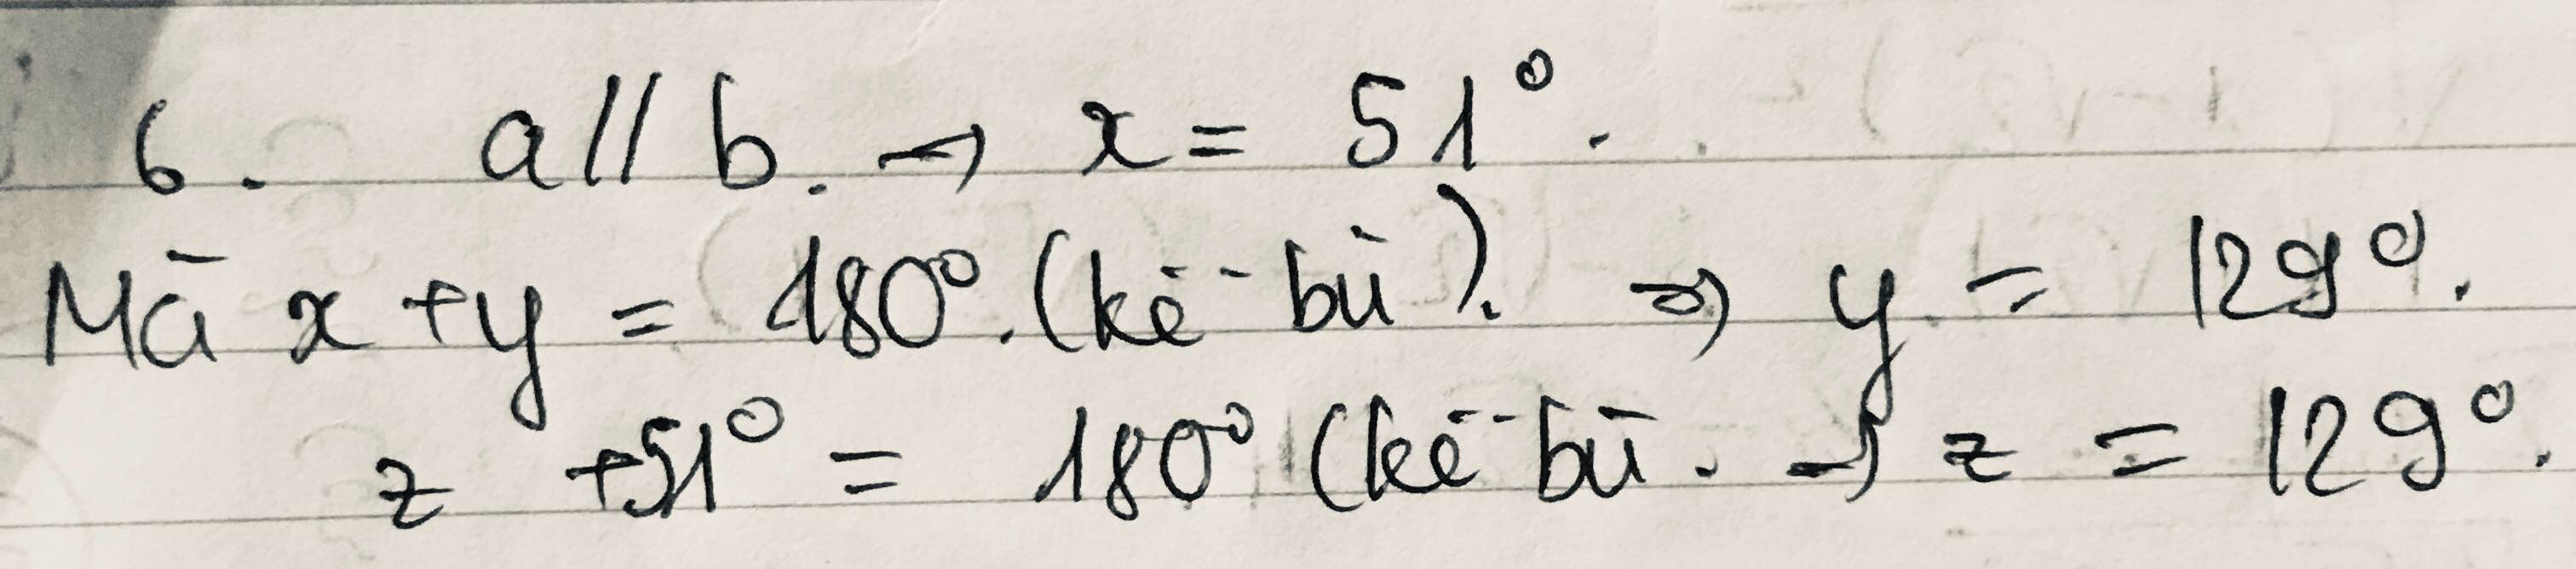 6. a // b. → x = 51°.
Mà x + y = 180°. (kề bù). ⇒ y = 129°.
z + 51° = 180° (kề bù. → z = 129°.